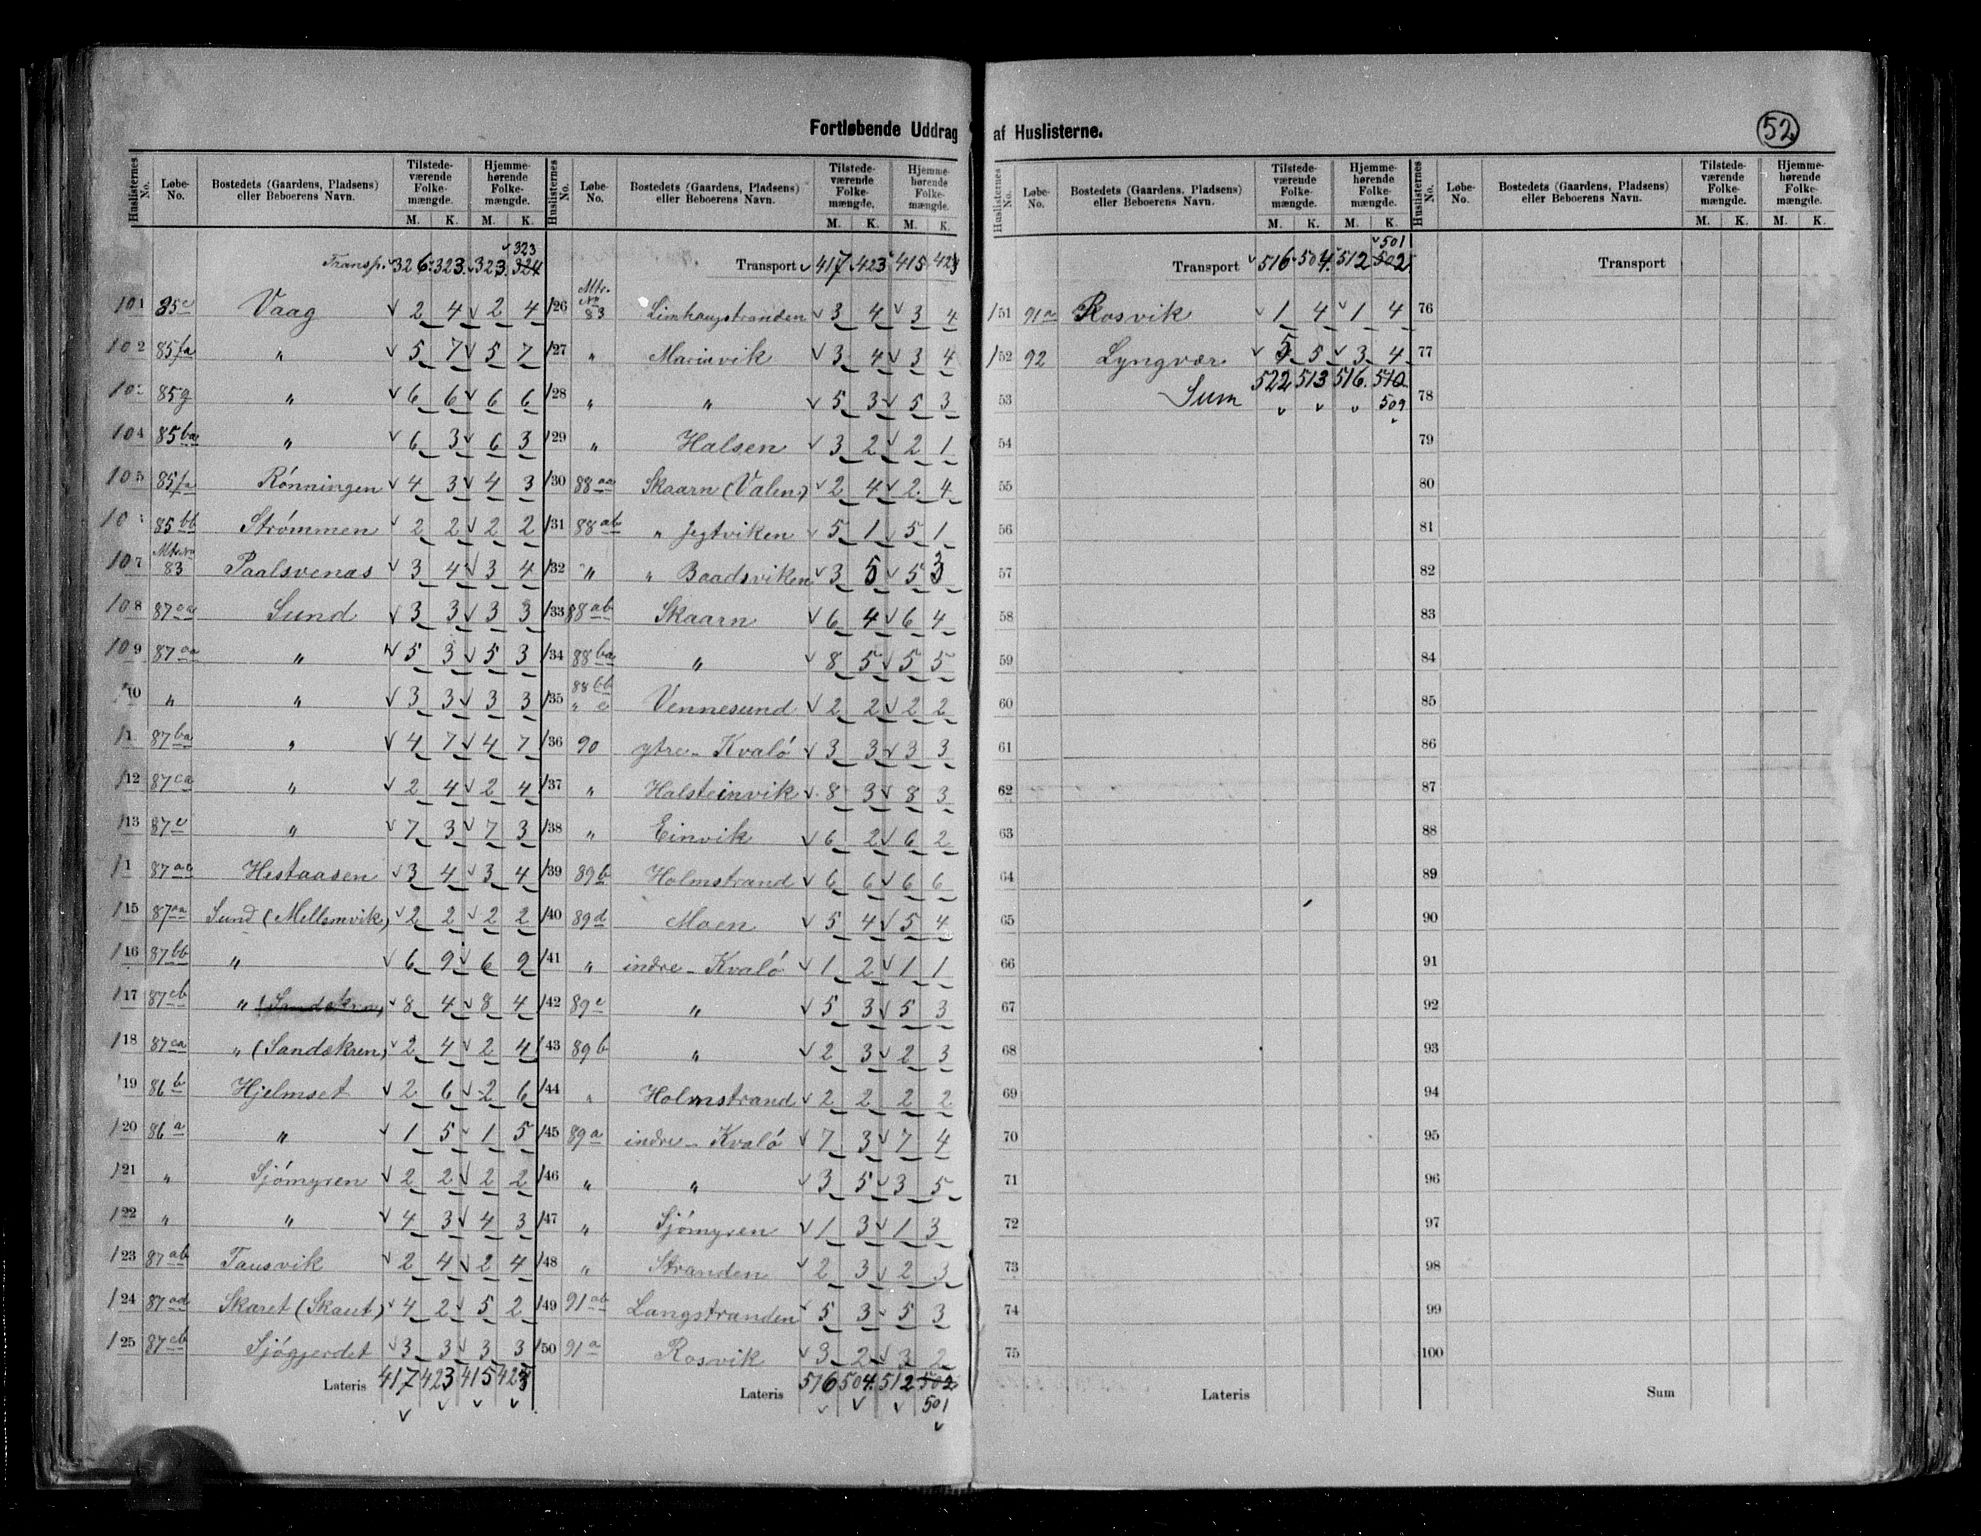 Fortløbende Uddrag af Huslisterne.
52
Huslisternes No. Løbe-No. Bostedets (Gaardens, Pladsens) eller Beboerens Navn. Tilstedeværende Folkemængde. M. K. Hjemmehørende Folkemængde. M. K.
323
Transp. 326 323 323 324
101 85c Vaag 2 4 2 4
102 85fa " 5 7 5 7
10 85g " 6 6 6 6
104 85ba " 6 3 6 3
105 85fa Rønningen 4 3 4 3
10 85bb Strømmen 2 2 2 2
107 Mtr. No 83 Paalsvenæs 3 4 3 4
108 87aa Sund 3 3 3 3
109 87aa " 5 3 5 3
110 " " 3 3 3 3
11 87ba " 4 7 4 7
112 87ca " 2 4 2 4
113 87c " 7 3 7 3
11 87ac Hestaasen 3 4 3 4
115 87aa Sund (Mellemvik) 2 2 2 2
116 87bb " 6 9 6 9
117 87cb " 8 4 8 4
118 87ca " (Sandskren) 2 4 2 4
119 86b Hjelmset 2 6 2 6
120 86a " 1 5 1 5
121 " Sjømyren 2 2 2 2
122 " " 4 3 4 3
123 87ab Tausvik 2 4 2 4
124 87ad Skaret (Skaret) 4 2 5 2
125 87cb Sjøgjerdet 3 3 3 3
Lateris 417 423 415 423
Huslisternes No. Løbe-No. Bostedets (Gaardens, Pladsens) eller Beboerens Navn. Tilstedeværende Folkemængde. M. K. Hjemmehørende Folkemængde. M. K.
Transport 417 423 415 423
126 Mtr. No 83 Limhaugstranden 3 4 3 4
127 " Marinvik 3 4 3 4
128 " " 5 3 5 3
129 " Halsen 3 2 2 1
130 88aa Skaarn (Valen) 2 4 2 4
131 88ab " Jegtviken 5 1 5 1
132 " " Baadsviken 3 5 5 3
133 88ab Skaarn 6 4 6 4
134 88ba " 8 5 5 5
135 88bb " c Vennesund 2 2 2 2
136 90 ytre - Kvalø 3 3 3 3
137 " Halsteinvik 8 3 8 3
138 " Einvik 6 2 6 2
139 89b Holmstrand 6 6 6 6
140 89d Moen 5 4 5 4
141 " indre - Kvalø 1 2 1 1
142 89c " 5 3 5 3
143 89b " 2 3 2 3
144 " Holmstrand 2 2 2 2
145 89a indre - Kvalø 7 3 7 4
146 " " 3 5 3 5
147 " Sjømyren 1 3 1 3
148 " Stranden 2 3 2 3
149 91ab Langstranden 5 3 5 3
150 91a Rosvik 3 2 3 2
Lateris 516 504 512 502
501
Huslisternes No. Løbe-No. Bostedets (Gaardens, Pladsens) eller Beboerens Navn. Tilstedeværende Folkemængde. M. K. Hjemmehørende Folkemængde. M. K.
501
Transport 516 504 512 502
151 91a Rosvik 1 4 1 4
152 92 Lyngvær 5 5 3 4
53 Sum 522 513 516 510
509
54
55
56
57
58
59
60
61
62
63
64
65
66
67
68
69
70
71
72
73
74
75
Lateris
Huslisternes No. Løbe-No. Bostedets (Gaardens, Pladsens) eller Beboerens Navn. Tilstedeværende Folkemængde. M. K. Hjemmehørende Folkemængde. M. K.
Transport
76
77
78
79
80
81
82
83
84
85
86
87
88
89
90
91
92
93
94
95
96
97
98
99
100
Sum